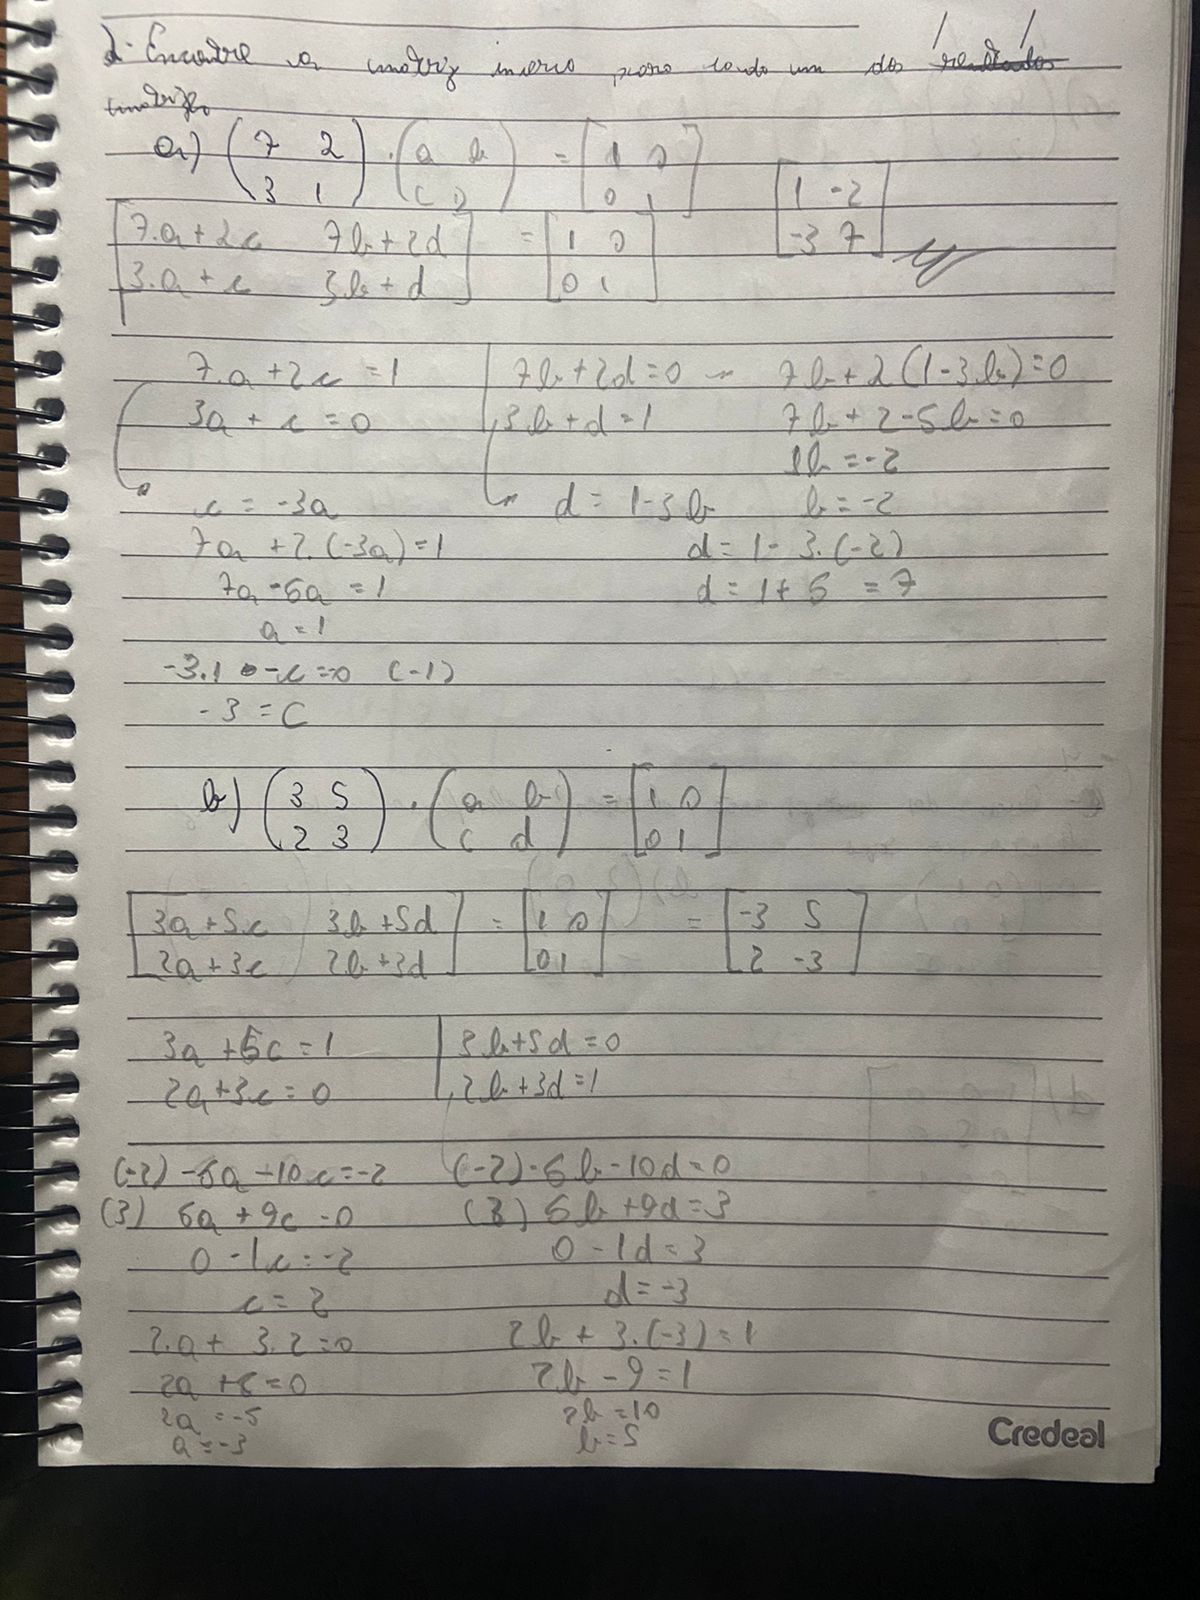 2- Encontre a matriz inversa para cada um das
matrizes
a) (7 2 / 3 1) · (a b / c d) = [1 0 / 0 1]
[1 -2 / -3 7]
[7.a+2c 7b+2d / 3.a+c 3b+d] = [1 0 / 0 1]
7.a+2c=1
3a+c=0
c=-3a
7a+2.(-3a)=1
7a-6a=1
a=1
-3.1 -c=0 (-1)
-3=C
7b+2d=0
3b+d=1
d=1-3b
7b+2(1-3b)=0
7b+2-6b=0
1b=-2
b=-2
d=1-3.(-2)
d=1+6=7
b) (3 5 / 2 3) · (a b / c d) = [1 0 / 0 1]
[3a+5c 3b+5d / 2a+3c 2b+3d] = [1 0 / 0 1] = [-3 5 / 2 -3]
3a+5c=1
2a+3c=0
(-2) -6a-10c=-2
(3) 6a+9c=0
0-1c=-2
c=2
2.a+3.2=0
2a+6=0
2a=-6
a=-3
3b+5d=0
2b+3d=1
(-2)-6b-10d=0
(3) 6b+9d=3
0-1d=3
d=-3
2b+3.(-3)=1
2b-9=1
2b=10
b=5
Credeal